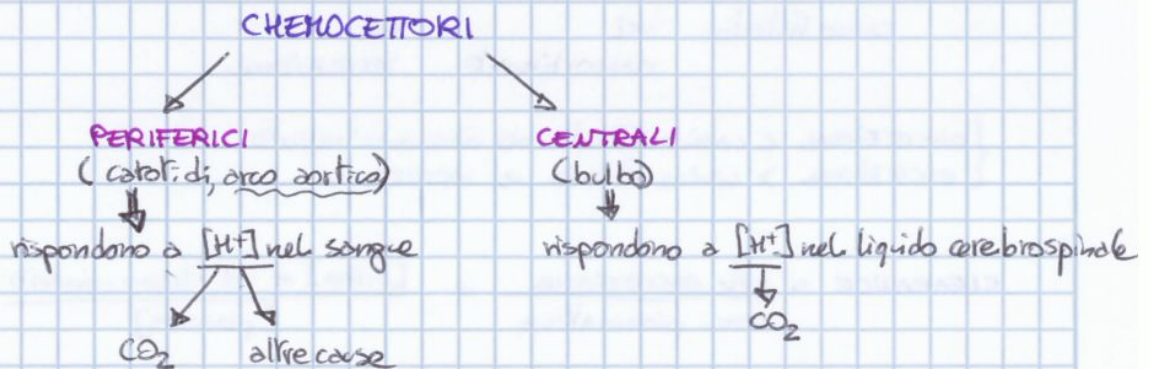 CHEMOCETTORI
PERIFERICI
(carotidi, arco aortico)
rispondono a [H+] nel sangue
CO2
altre cause
CENTRALI
(bulbo)
rispondono a [H+] nel liquido cerebrospinale
CO2